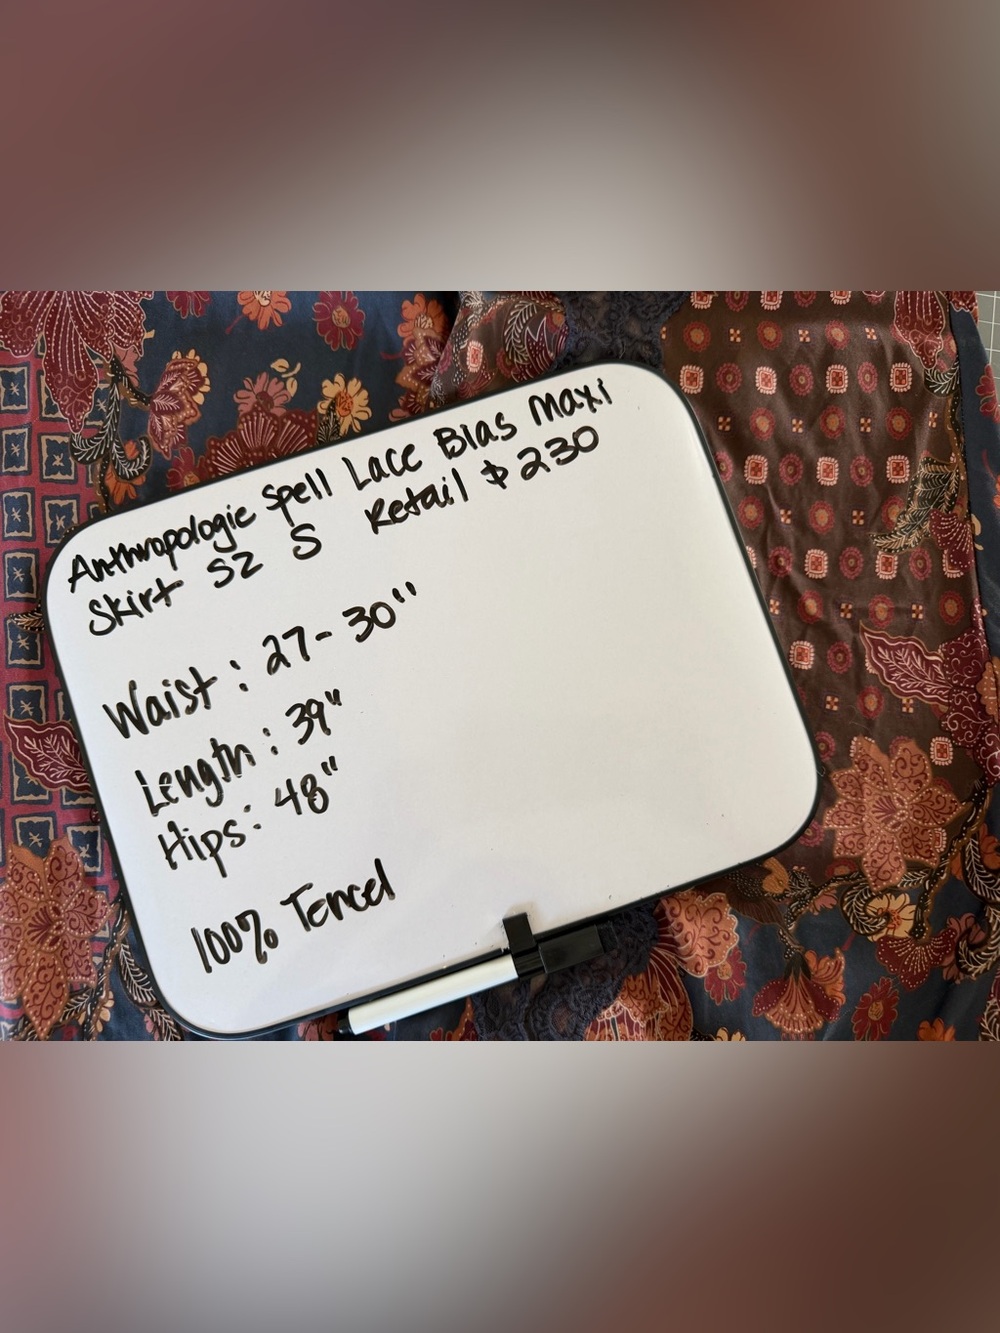 Anthropologie Spell Lace Bias Maxi
Skirt SZ S Retail $230
Waist: 27-30"
Length: 39"
Hips: 48"
100% Tencel